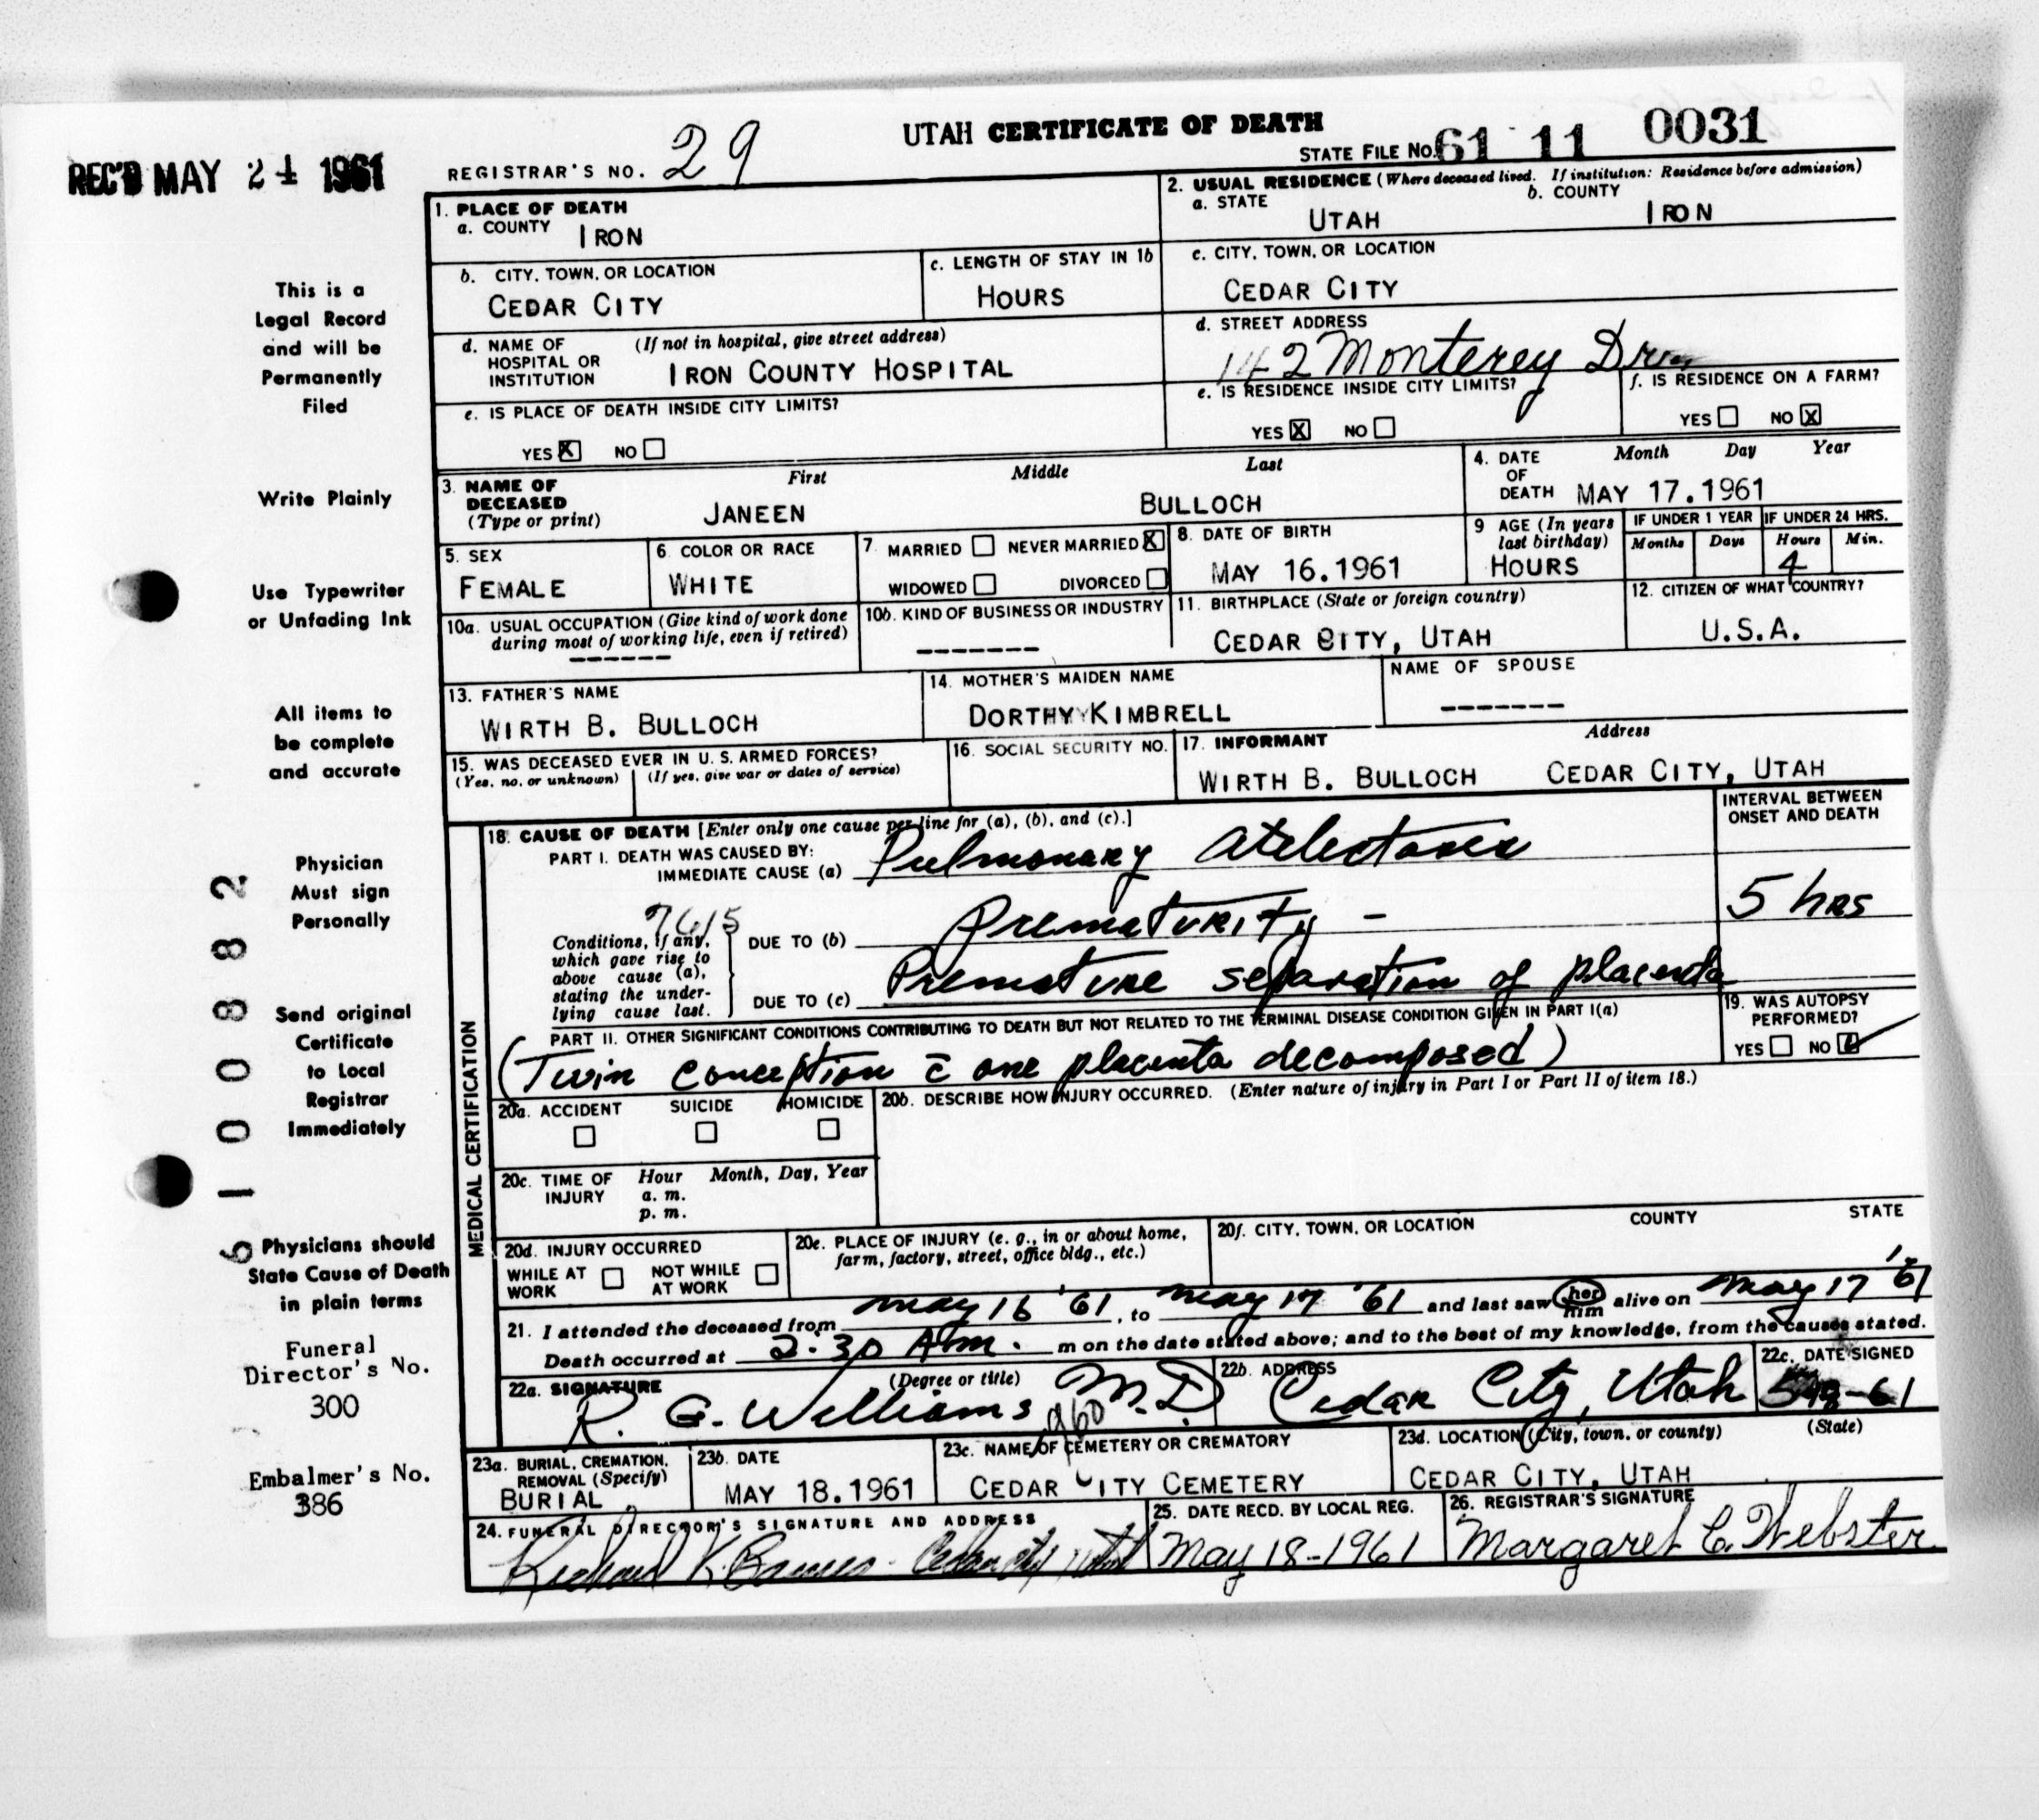 UTAH CERTIFICATE OF DEATH
REC'D MAY 24 1961
REGISTRAR'S NO. 29
STATE FILE NO. 61 11 0031
This is a
Legal Record
and will be
Permanently
Filed
Write Plainly
Use Typewriter
or Unfading Ink
All items to
be complete
and accurate
Physician
Must sign
Personally
Send original
Certificate
to Local
Registrar
Immediately
Physicians should
State Cause of Death
in plain terms
Funeral
Director's No.
300
Embalmer's No.
386
6 1 0 0 8 8 2
1. PLACE OF DEATH
a. COUNTY IRON
2. USUAL RESIDENCE (Where deceased lived. If institution: Residence before admission)
a. STATE UTAH b. COUNTY IRON
b. CITY, TOWN, OR LOCATION
CEDAR CITY
c. LENGTH OF STAY IN 1b
HOURS
c. CITY, TOWN, OR LOCATION
CEDAR CITY
d. NAME OF HOSPITAL OR INSTITUTION (If not in hospital, give street address)
IRON COUNTY HOSPITAL
d. STREET ADDRESS
142 Monterey
e. IS PLACE OF DEATH INSIDE CITY LIMITS?
YES X NO
e. IS RESIDENCE INSIDE CITY LIMITS?
YES X NO
f. IS RESIDENCE ON A FARM?
YES NO X
3. NAME OF DECEASED (Type or print)
First Middle Last
JANEEN BULLOCH
4. DATE OF DEATH Month Day Year
MAY 17.1961
5. SEX
FEMALE
6. COLOR OR RACE
WHITE
7. MARRIED NEVER MARRIED X
WIDOWED DIVORCED
8. DATE OF BIRTH
MAY 16.1961
9 AGE (In years last birthday)
HOURS
IF UNDER 1 YEAR IF UNDER 24 HRS.
Months Days Hours Min.
4
10a. USUAL OCCUPATION (Give kind of work done during most of working life, even if retired)
------
10b. KIND OF BUSINESS OR INDUSTRY
-------
11. BIRTHPLACE (State or foreign country)
CEDAR CITY, UTAH
12. CITIZEN OF WHAT COUNTRY?
U.S.A.
13. FATHER'S NAME
WIRTH B. BULLOCH
14. MOTHER'S MAIDEN NAME
DORTHY KIMBRELL
NAME OF SPOUSE
-------
15. WAS DECEASED EVER IN U. S. ARMED FORCES?
(Yes, no, or unknown) (If yes, give war or dates of service)
16. SOCIAL SECURITY NO.
17. INFORMANT Address
WIRTH B. BULLOCH CEDAR CITY, UTAH
MEDICAL CERTIFICATION
18. CAUSE OF DEATH [Enter only one cause per line for (a), (b), and (c).]
PART I. DEATH WAS CAUSED BY:
IMMEDIATE CAUSE (a) Pulmonary atelectasis
INTERVAL BETWEEN ONSET AND DEATH
5 hrs
7615
Conditions, if any, which gave rise to above cause (a), stating the underlying cause last.
DUE TO (b) Prematurity -
DUE TO (c) Premature separation of placenta
PART II. OTHER SIGNIFICANT CONDITIONS CONTRIBUTING TO DEATH BUT NOT RELATED TO THE TERMINAL DISEASE CONDITION GIVEN IN PART I(a)
(Twin conception c̄ one placenta decomposed)
19. WAS AUTOPSY PERFORMED?
YES NO
20a. ACCIDENT SUICIDE HOMICIDE
20b. DESCRIBE HOW INJURY OCCURRED. (Enter nature of injury in Part I or Part II of item 18.)
20c. TIME OF INJURY Hour Month, Day, Year
a. m.
p. m.
20d. INJURY OCCURRED
WHILE AT WORK NOT WHILE AT WORK
20e. PLACE OF INJURY (e. g., in or about home, farm, factory, street, office bldg., etc.)
20f. CITY, TOWN, OR LOCATION COUNTY STATE
21. I attended the deceased from may 16 '61, to may 17 '61 and last saw her him alive on may 17 '61
Death occurred at 2:30 Am. m on the date stated above; and to the best of my knowledge, from the causes stated.
22a. SIGNATURE (Degree or title)
R. G. Williams M.D.
960
22b. ADDRESS
Cedar City, Utah
22c. DATE SIGNED
5-18-61
23a. BURIAL, CREMATION, REMOVAL (Specify)
BURIAL
23b. DATE
MAY 18.1961
23c. NAME OF CEMETERY OR CREMATORY
CEDAR CITY CEMETERY
23d. LOCATION (City, town, or county) (State)
CEDAR CITY, UTAH
24. FUNERAL DIRECTOR'S SIGNATURE AND ADDRESS
Richard K. Cedar City Utah
25. DATE RECD. BY LOCAL REG.
May 18-1961
26. REGISTRAR'S SIGNATURE
Margaret C. Webster